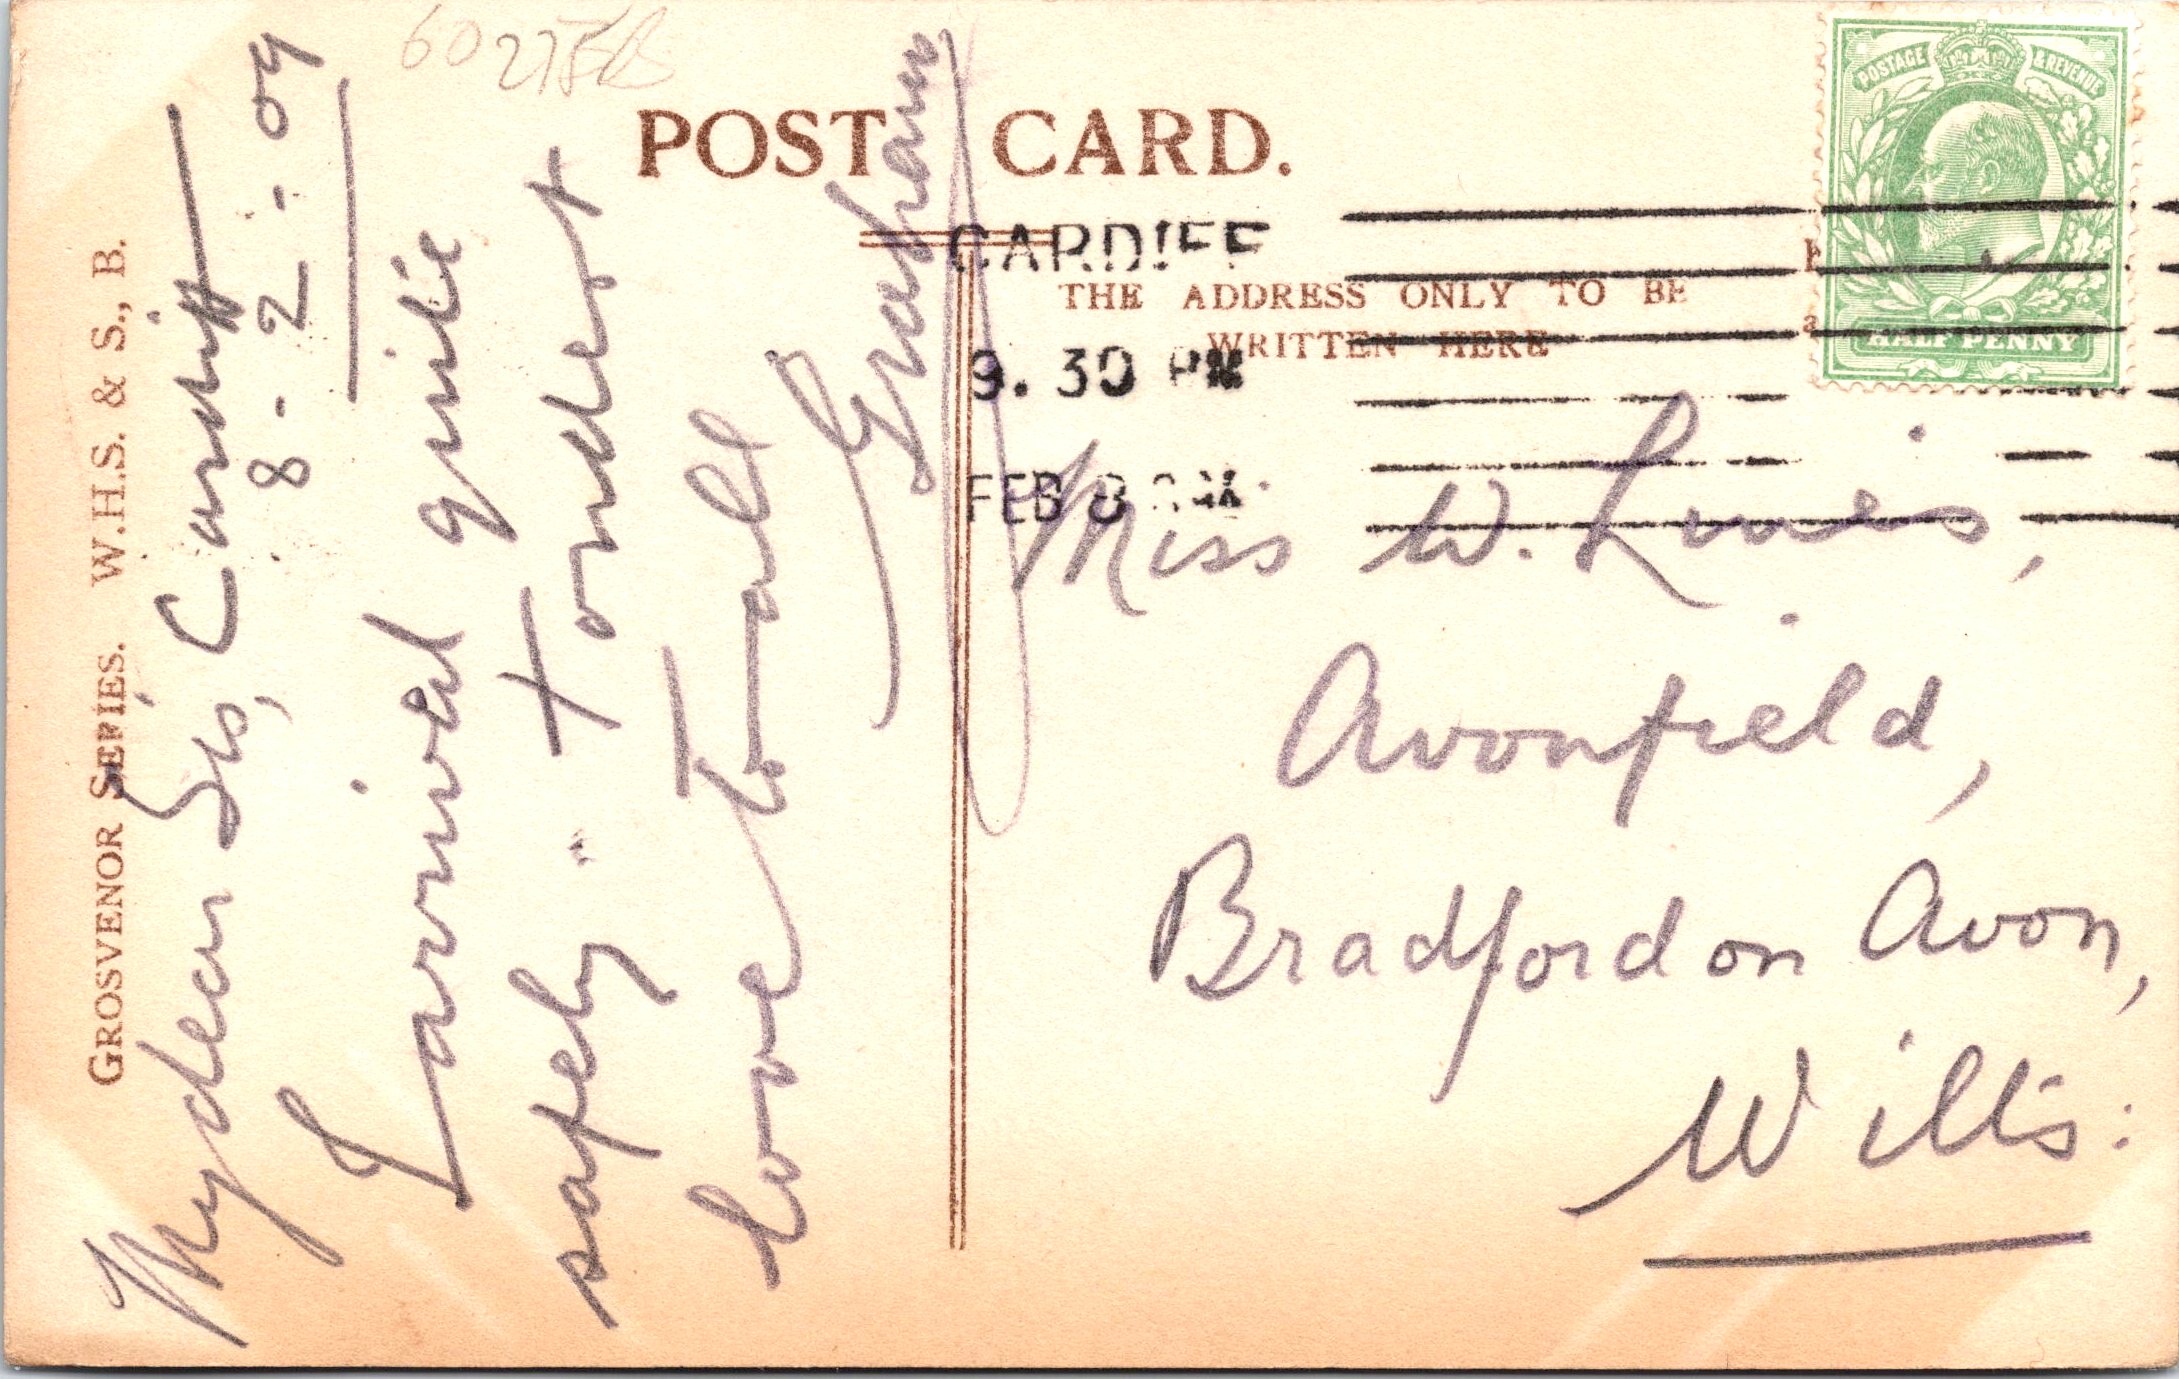 60275B
POST CARD.
THE ADDRESS ONLY TO BE
WRITTEN HERE
GROSVENOR SERIES. W.H.S. & S., B.
POSTAGE & REVENUE
HALF PENNY
CARDIFF
9.30 PM
FEB 8
My dear Sis, Cardiff
8-2-09
I arrived quite
safely. Fondest
love to all
Graham
Miss W.
Avonfield,
Bradford on Avon,
Wilts: